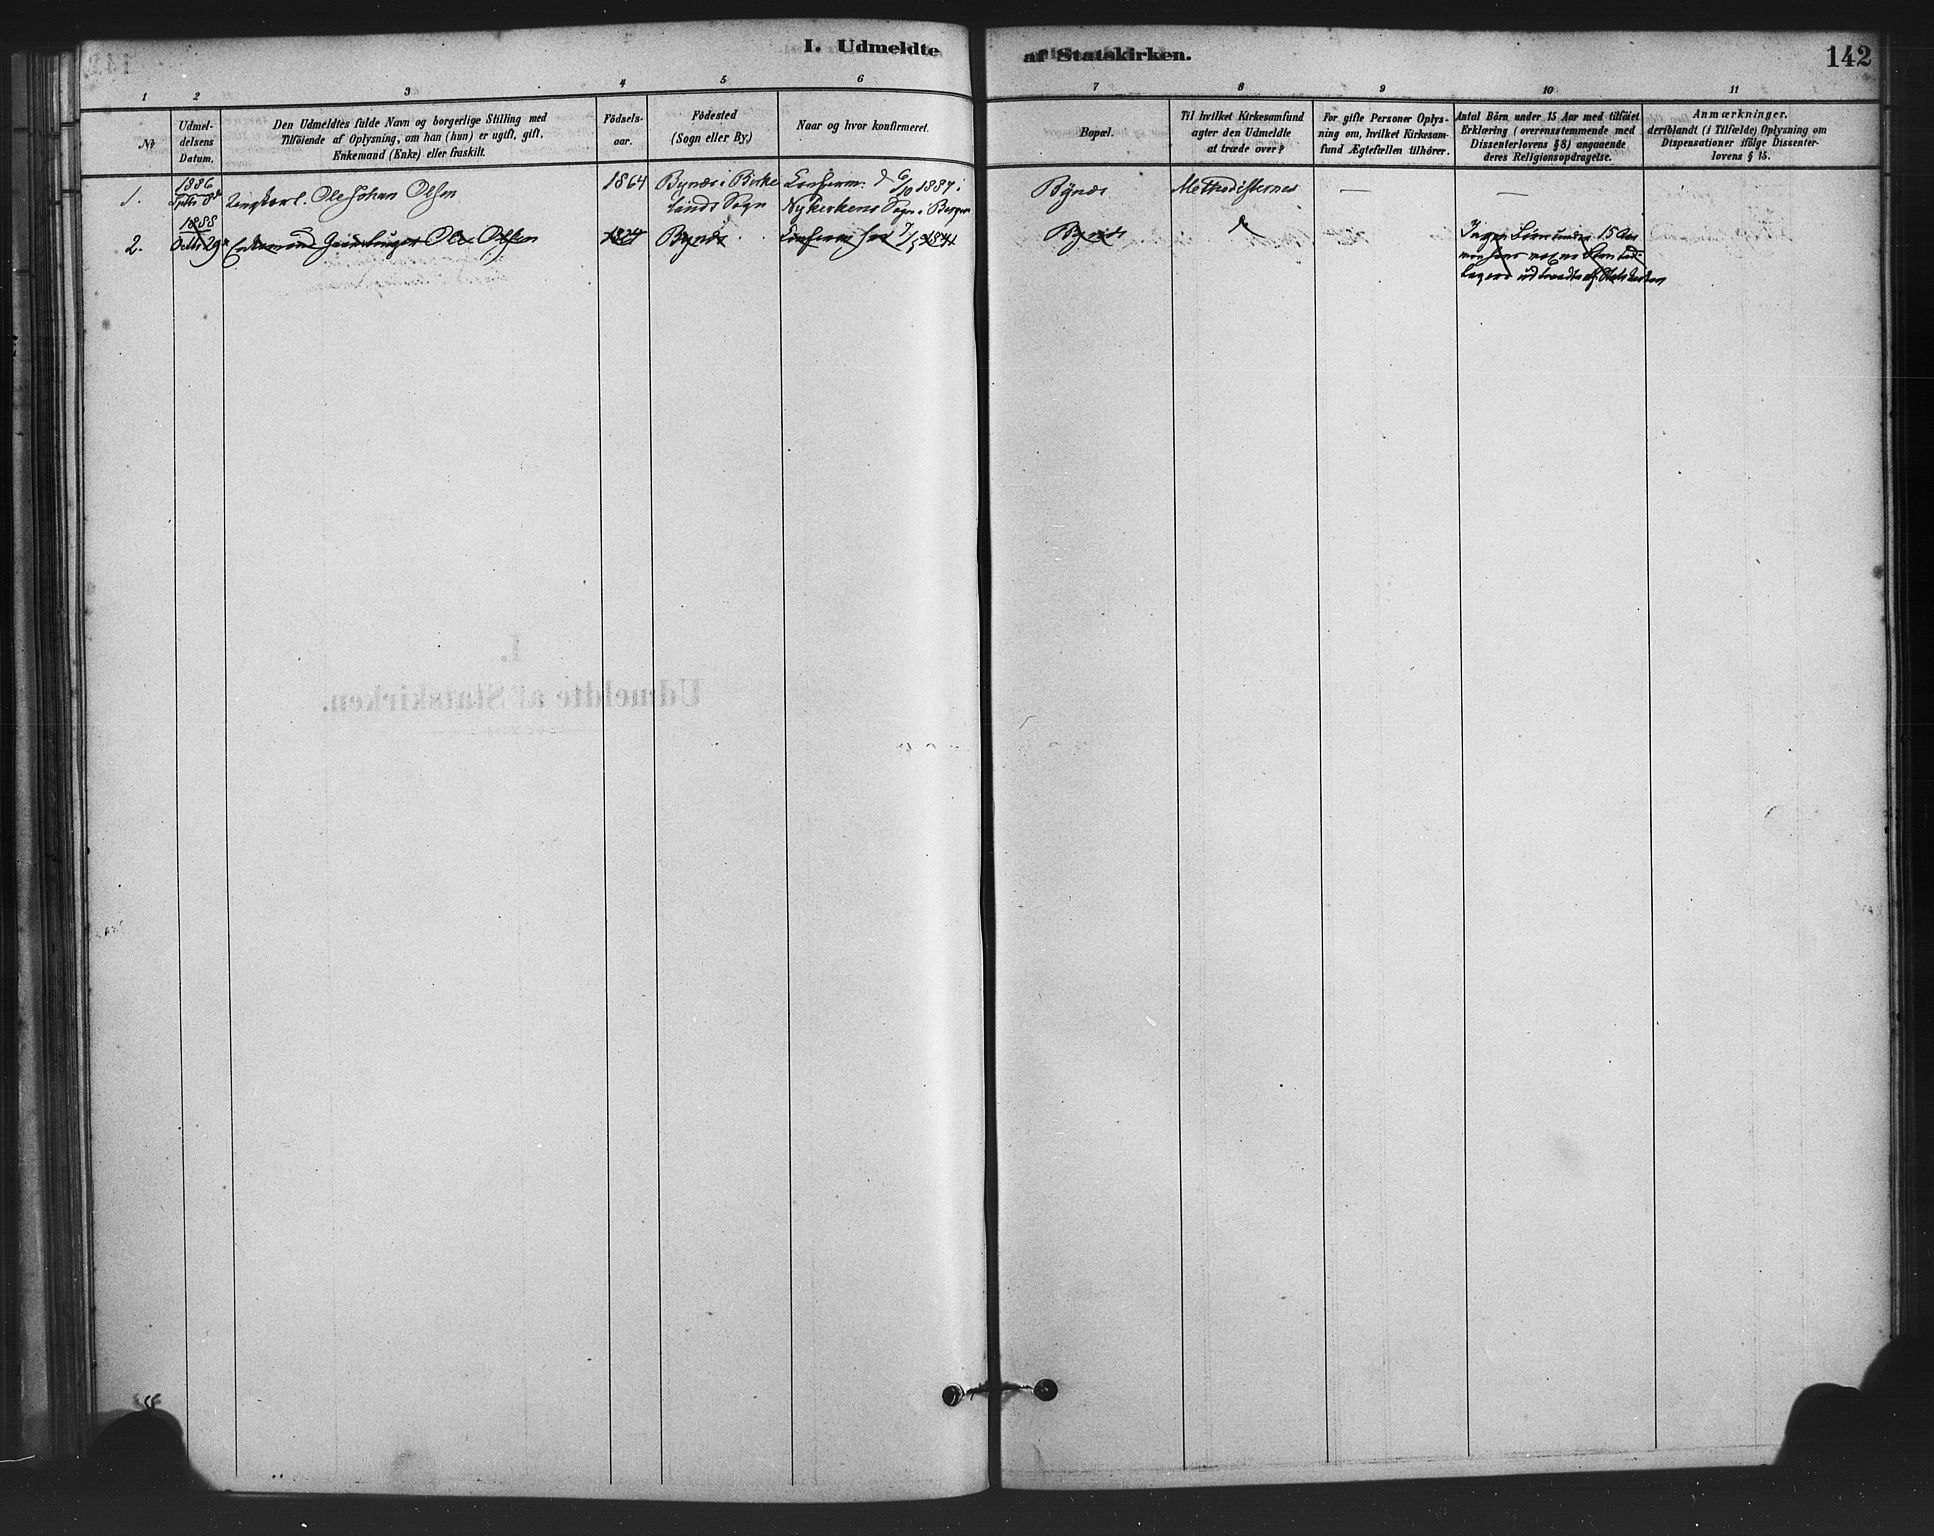 I. Udmeldte
af Statskirken.
142
1
2
3
4
5
6
7
8
9
10
11
No
Udmel-
delsens
Datum.
Den Udmeldtes fulde Navn og borgerlige Stilling med
Tilföiende af Oplysning, om han (hun) er ugift, gift,
Enkemand (Enke) eller fraskilt.
Födsels-
aar.
Födested
(Sogn eller By.)
Naar og hvor konfirmeret.
Bopæl.
Til hvilket Kirkesamfund
agter den Udmeldte
at træde over?
For gifte Personer Oplys-
ning om, hvilket Kirkesam-
fund Ægtefællen tilhörer.
Antal Börn under 15 Aar med tilföiet
Erklæring (overensstemmende med
Dissenterlovens § 8) angaaende
deres Religionsopdragelse.
Anmærkninger.
deriblandt (i Tilfælde) Oplysning om
Dispensationer ifölge Dissenter-
lovens § 15.
1.
1886
Ungkarl. Ole Johan Olsen
1864
Bynæs i Birke
lands Sogn
Confirm. d 6/10 188
Nykirkens Sogn i Bergen
Bynæs
Methodisternes
—
—
2.
1888
Octbr 29
Ole Olsen
Bynæs
Bynæs
Ingen Börn under 15 Aar
udtraadte af Statskirken
I.
Udmeldte af Statskirken.